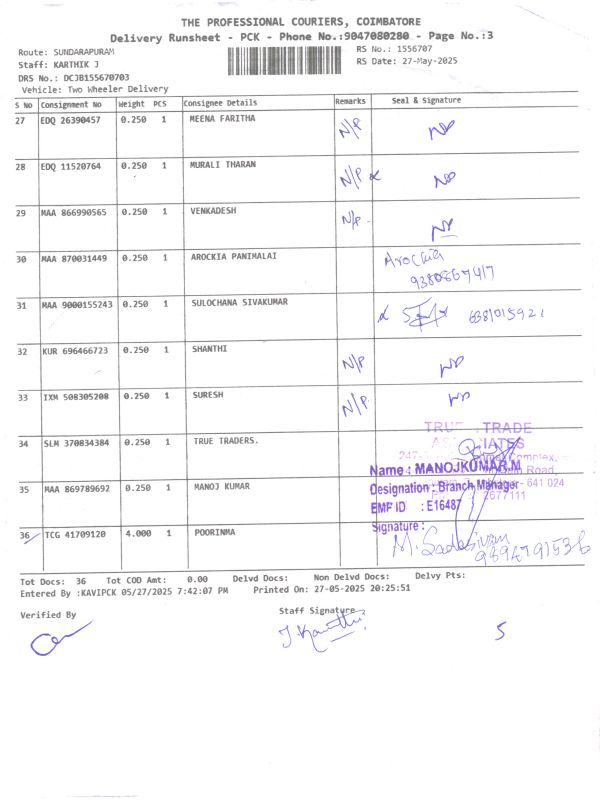 THE PROFESSIONAL COURIERS, COIMBATORE
Delivery Runsheet - PCK - Phone No.:9047080280 - Page No.:3
Route: SUNDARAPURAM RS No.: 1556707
Staff: KARTHIK J RS Date: 27-May-2025
DRS No.: DCJB155670703
Vehicle: Two Wheeler Delivery
S No Consignment No Weight PCS Consignee Details Remarks Seal & Signature
27 EDQ 26390457 0.250 1 MEENA FARITHA N/P NP
28 EDQ 11520764 0.250 1 MURALI THARAN N/P NP
29 MAA 866990565 0.250 1 VENKADESH N/P NP
30 MAA 870031449 0.250 1 AROCKIA PANIMALAI Arockia
31 MAA 9000155243 0.250 1 SULOCHANA SIVAKUMAR 6381015921
32 KUR 696466723 0.250 1 SHANTHI N/P NP
33 IXM 508305208 0.250 1 SURESH N/P NP
TRUE TRADE
34 SLM 370834384 0.250 1 TRUE TRADERS.
Name : MANOJKUMAR.M
Road,
35 MAA 869789692 0.250 1 MANOJ KUMAR Designation : Branch Manager - 641 024
EMP ID : E16487 2677111
Signature :
36 TCG 41709120 4.000 1 POORINMA M. Sadasivam
9894791536
Tot Docs: 36 Tot COD Amt: 0.00 Delvd Docs: Non Delvd Docs: Delvy Pts:
Entered By :KAVIPCK 05/27/2025 7:42:07 PM Printed On: 27-05-2025 20:25:51
Verified By Staff Signature
5